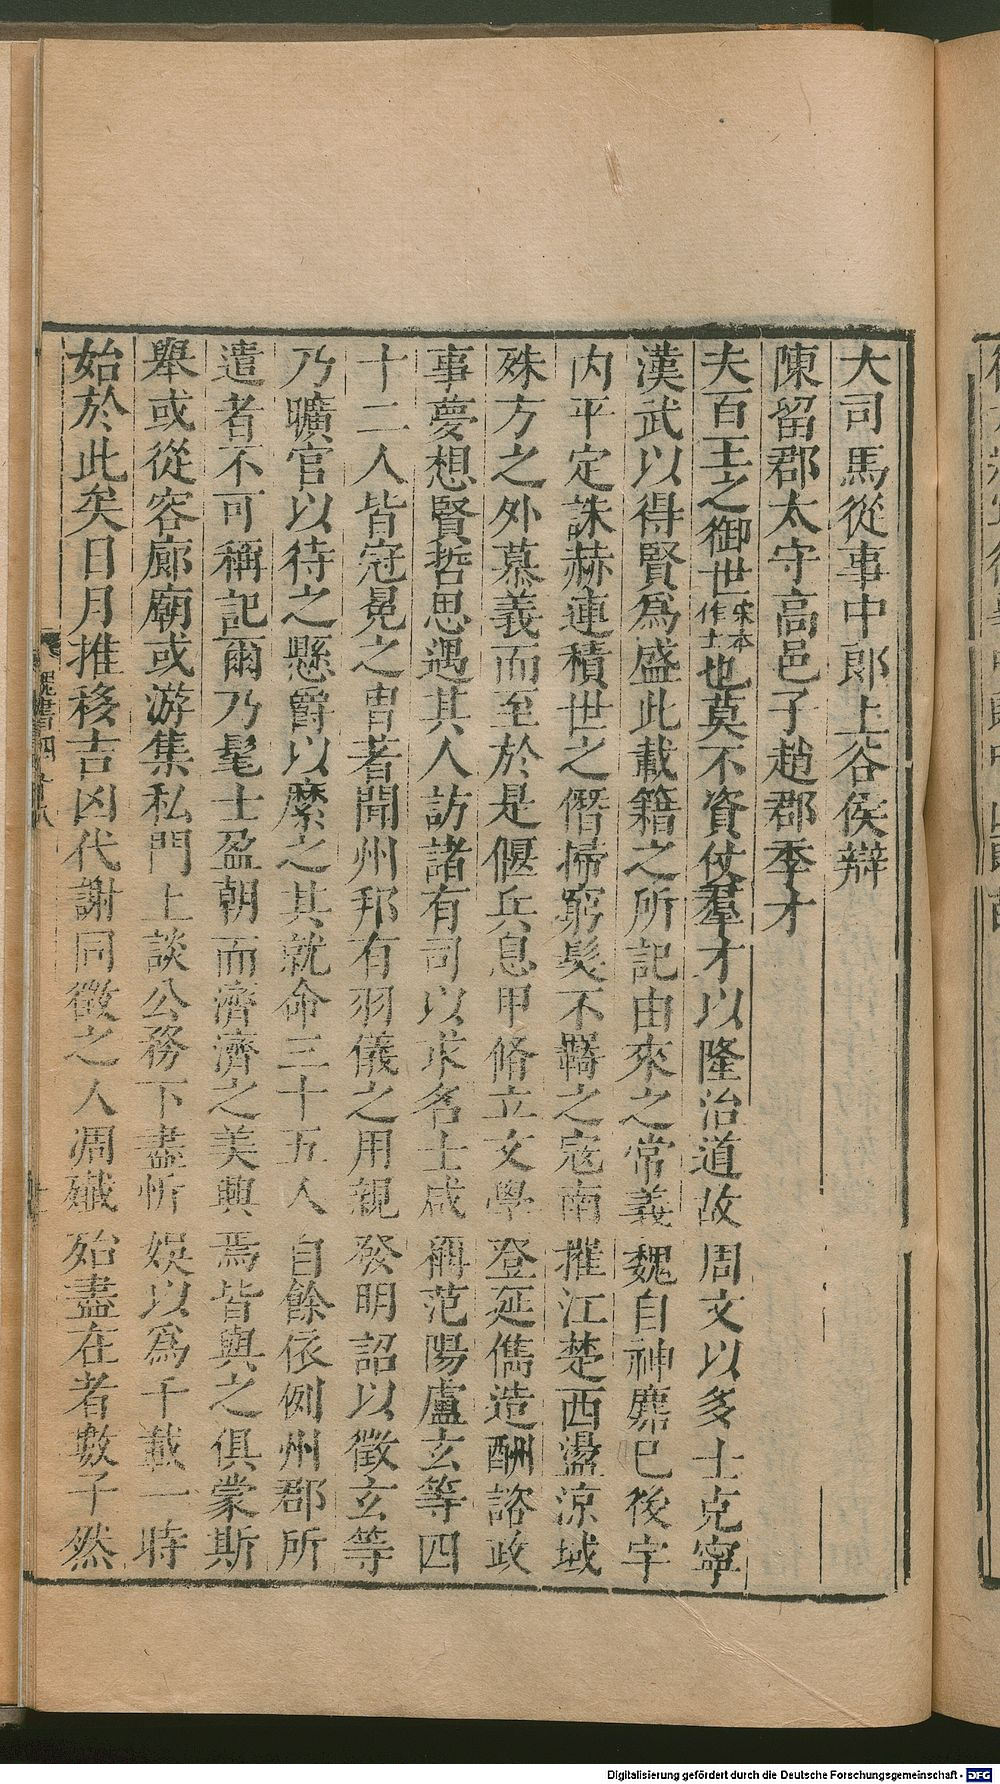 大司馬從事中郎上谷侯辯
陳留郡太守高邑子趙郡季才
夫百王之御世宋本作士也莫不資仗羣才以隆治道故周文以多士克寧
漢武以得賢爲盛此載籍之所記由來之常義魏自神䴥已後宇
内平定誅赫連積世之僭掃窮髮不羈之寇南摧江楚西盪涼域
殊方之外慕義而至於是偃兵息甲脩立文學登延儁造酬諮政
事夢想賢哲思遇其人訪諸有司以求名士咸稱范陽盧玄等四
十二人皆冠冕之胄著聞州邦有羽儀之用親發明詔以徵玄等
乃曠官以待之懸爵以縻之其就命三十五人自餘依例州郡所
遣者不可稱記爾乃髦士盈朝而濟濟之美興焉皆與之俱蒙斯
舉或從容廊廟或游集私門上談公務下盡忻娱以爲千載一時
始於此矣日月推移吉凶代謝同徵之人凋殲殆盡在者數子然
魏書四十八
Digitalisierung gefördert durch die Deutsche Forschungsgemeinschaft - DFG